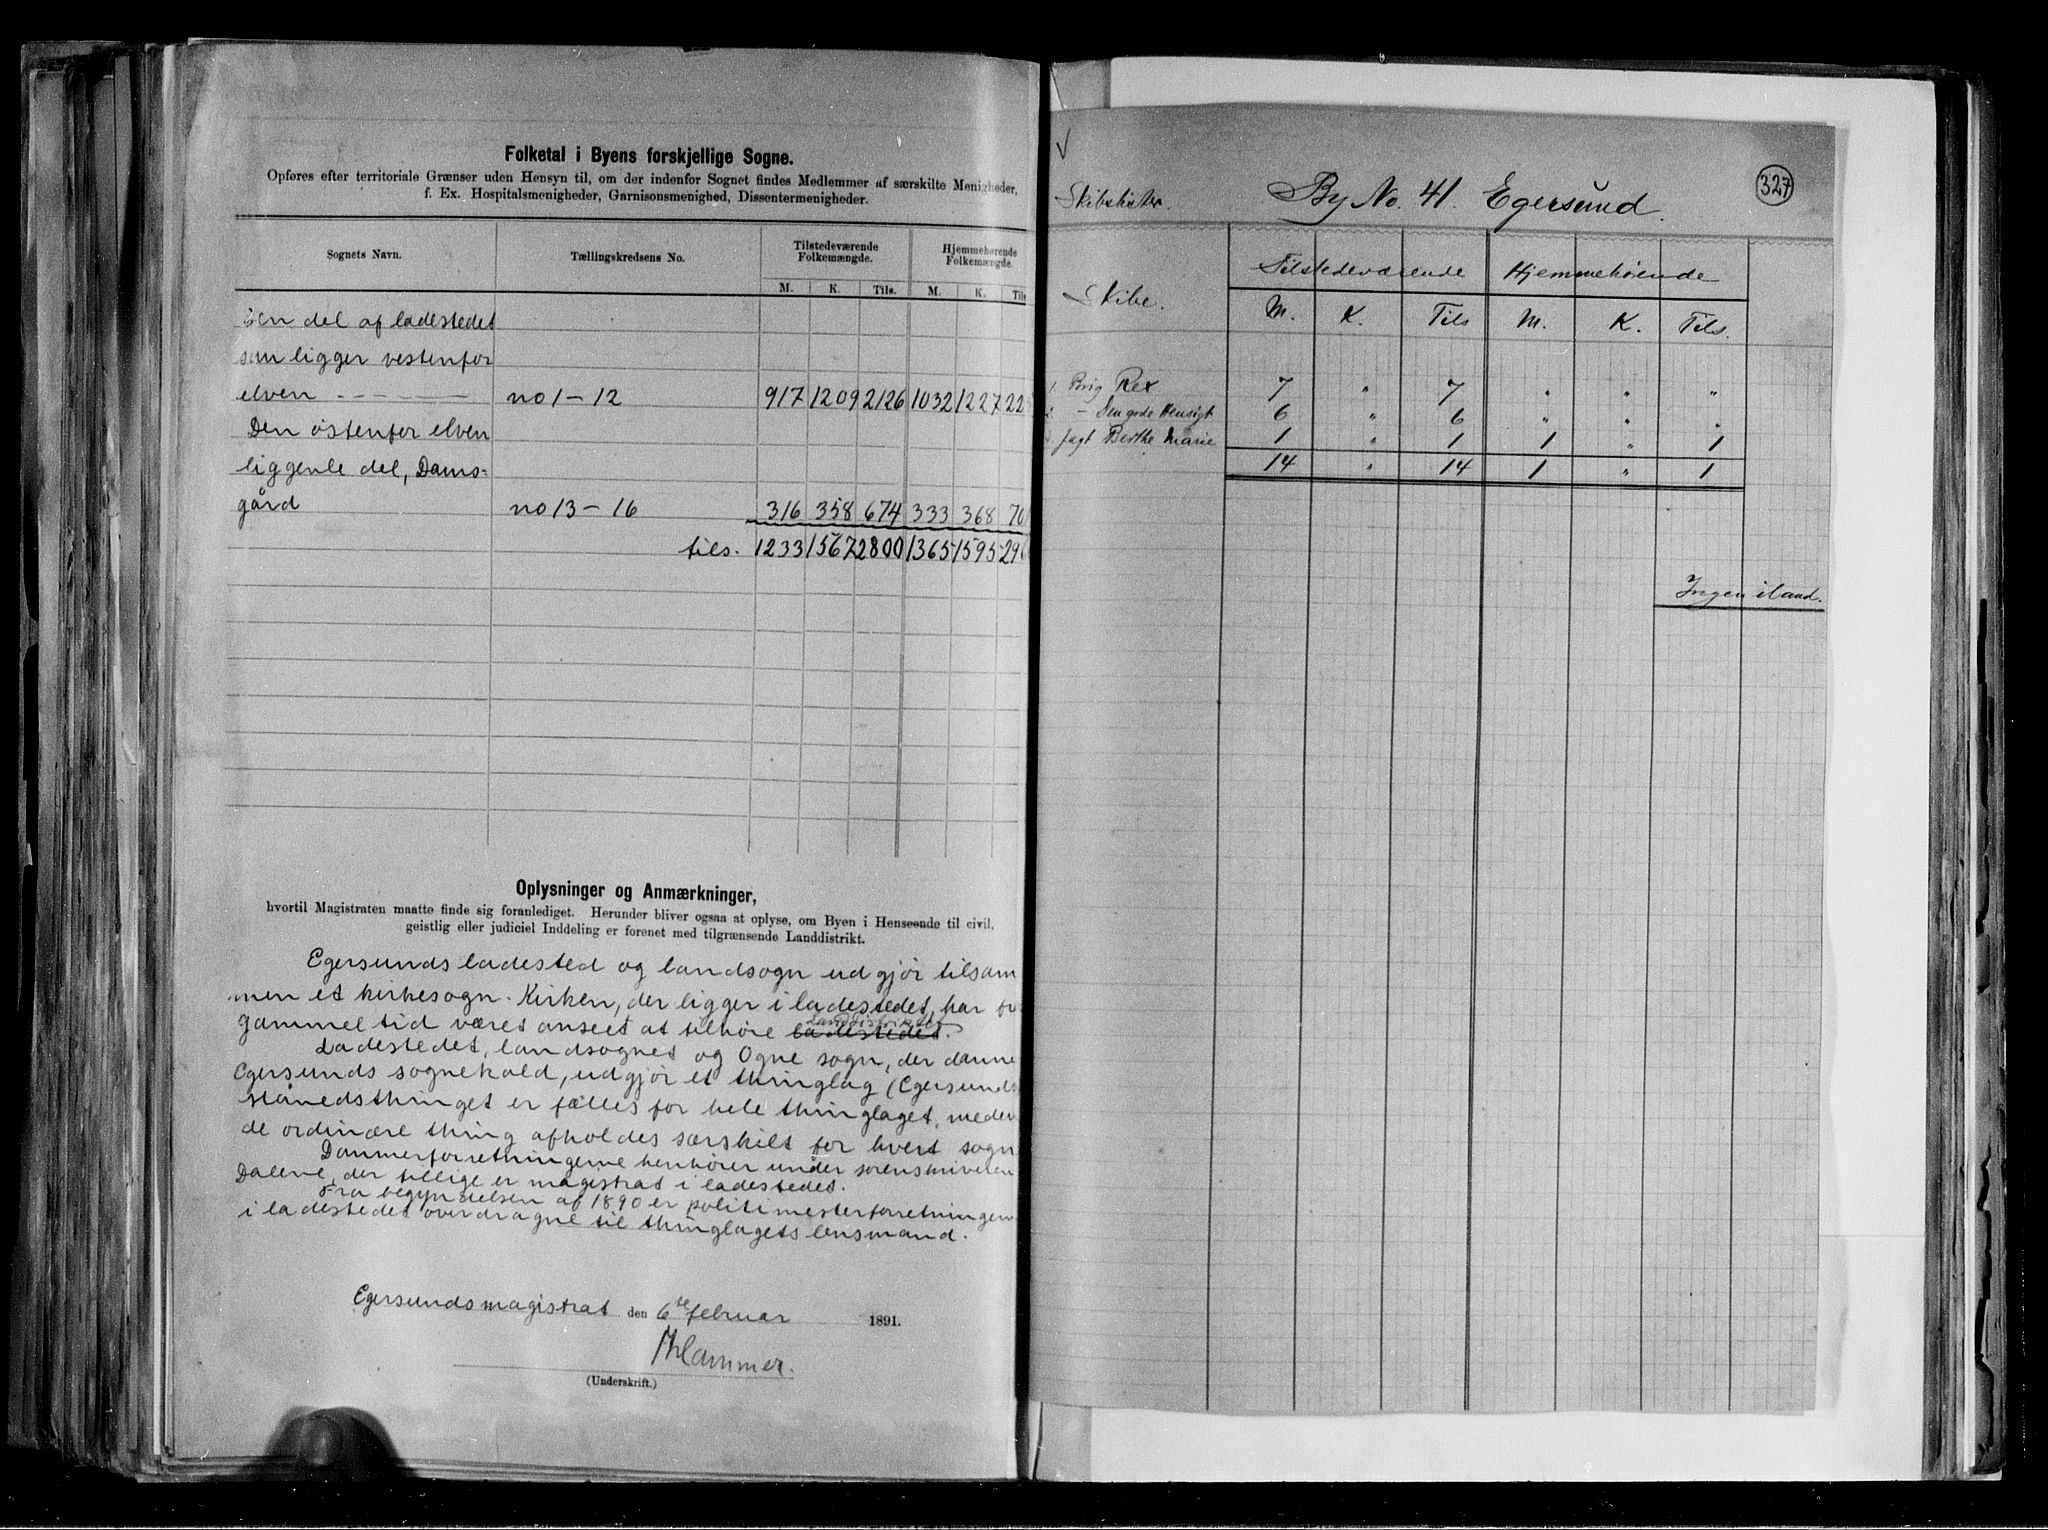 Folketal i Byens forskjellige Sogne.
Opføres efter territoriale Grænser uden Hensyn til, om der indenfor Sognet findes Medlemmer af særskilte Menigheder,
f. Ex. Hospitalsmenigheder, Garnisonsmenighed, Dissentermenigheder.
Sognets Navn. Tællingskredsens No. Tilstedeværende Folkemængde. Hjemmehørende Folkemængde.
M. K. Tils. M. K. Tils
Den del af ladestedet
som ligger vestenfor
elven no 1 - 12 917 1209 2126 1032 1227 22
Den østenfor elven
liggende del, Dams-
gård no 13 - 16 316 358 674 333 368 70
tils. 1233 1567 2800 1365 1595 29
Oplysninger og Anmærkninger,
hvortil Magistraten maatte finde sig foranlediget. Herunder bliver ogsaa at oplyse, om Byen i Henseende til civil,
geistlig eller judiciel Inddeling er forenet med tilgrænsende Landdistrikt.
Egersunds ladested og landsogn udgjør tilsam
men et kirkesogn. Kirken, der ligger i ladestedet, har
gammel tid været anseet at tilhøre ladestedet landdistriktet.
Ladestedet, landsognet og Ogne sogn, der danne
Egersunds sognekald, udgjør et thinglag (Egersunds
Månedsthinget er fælles for hele thinglaget, meden
de ordinære thing afholdes særskilt for hvert sogn
Dommerforretningerne henhører under sorenskriveren
Dalerne, der tillige er magistrat i ladestedet.
Fra begyndelsen af 1890 er politimesterforretningen
i ladestedet overdragne til thinglagets lensmand.
Egersunds magistrat den 6te februar 1891.
Hammer.
(Underskrift.)
327
Skibslister. By No. 41. Egersund.
Skibe. Tilstedeværende Hjemmehørende
M. K. Tils M. K. Tils.
1. Brig Rex 7 " 7 " " "
2 - Den gode Hensigt 6 " 6 " " "
3. Jagt Berthe Marie 1 " 1 1 " 1
14 " 14 1 " 1
Ingen iland.